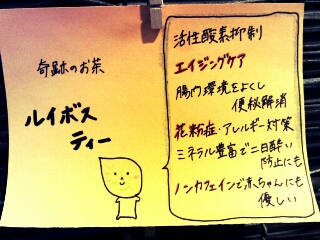 奇跡のお茶
ルイボス
ティー
活性酸素抑制
エイジングケア
腸内環境をよくし
便秘解消
花粉症・アレルギー対策
ミネラル豊富で二日酔い
防止にも
ノンカフェインで赤ちゃんにも
優しい